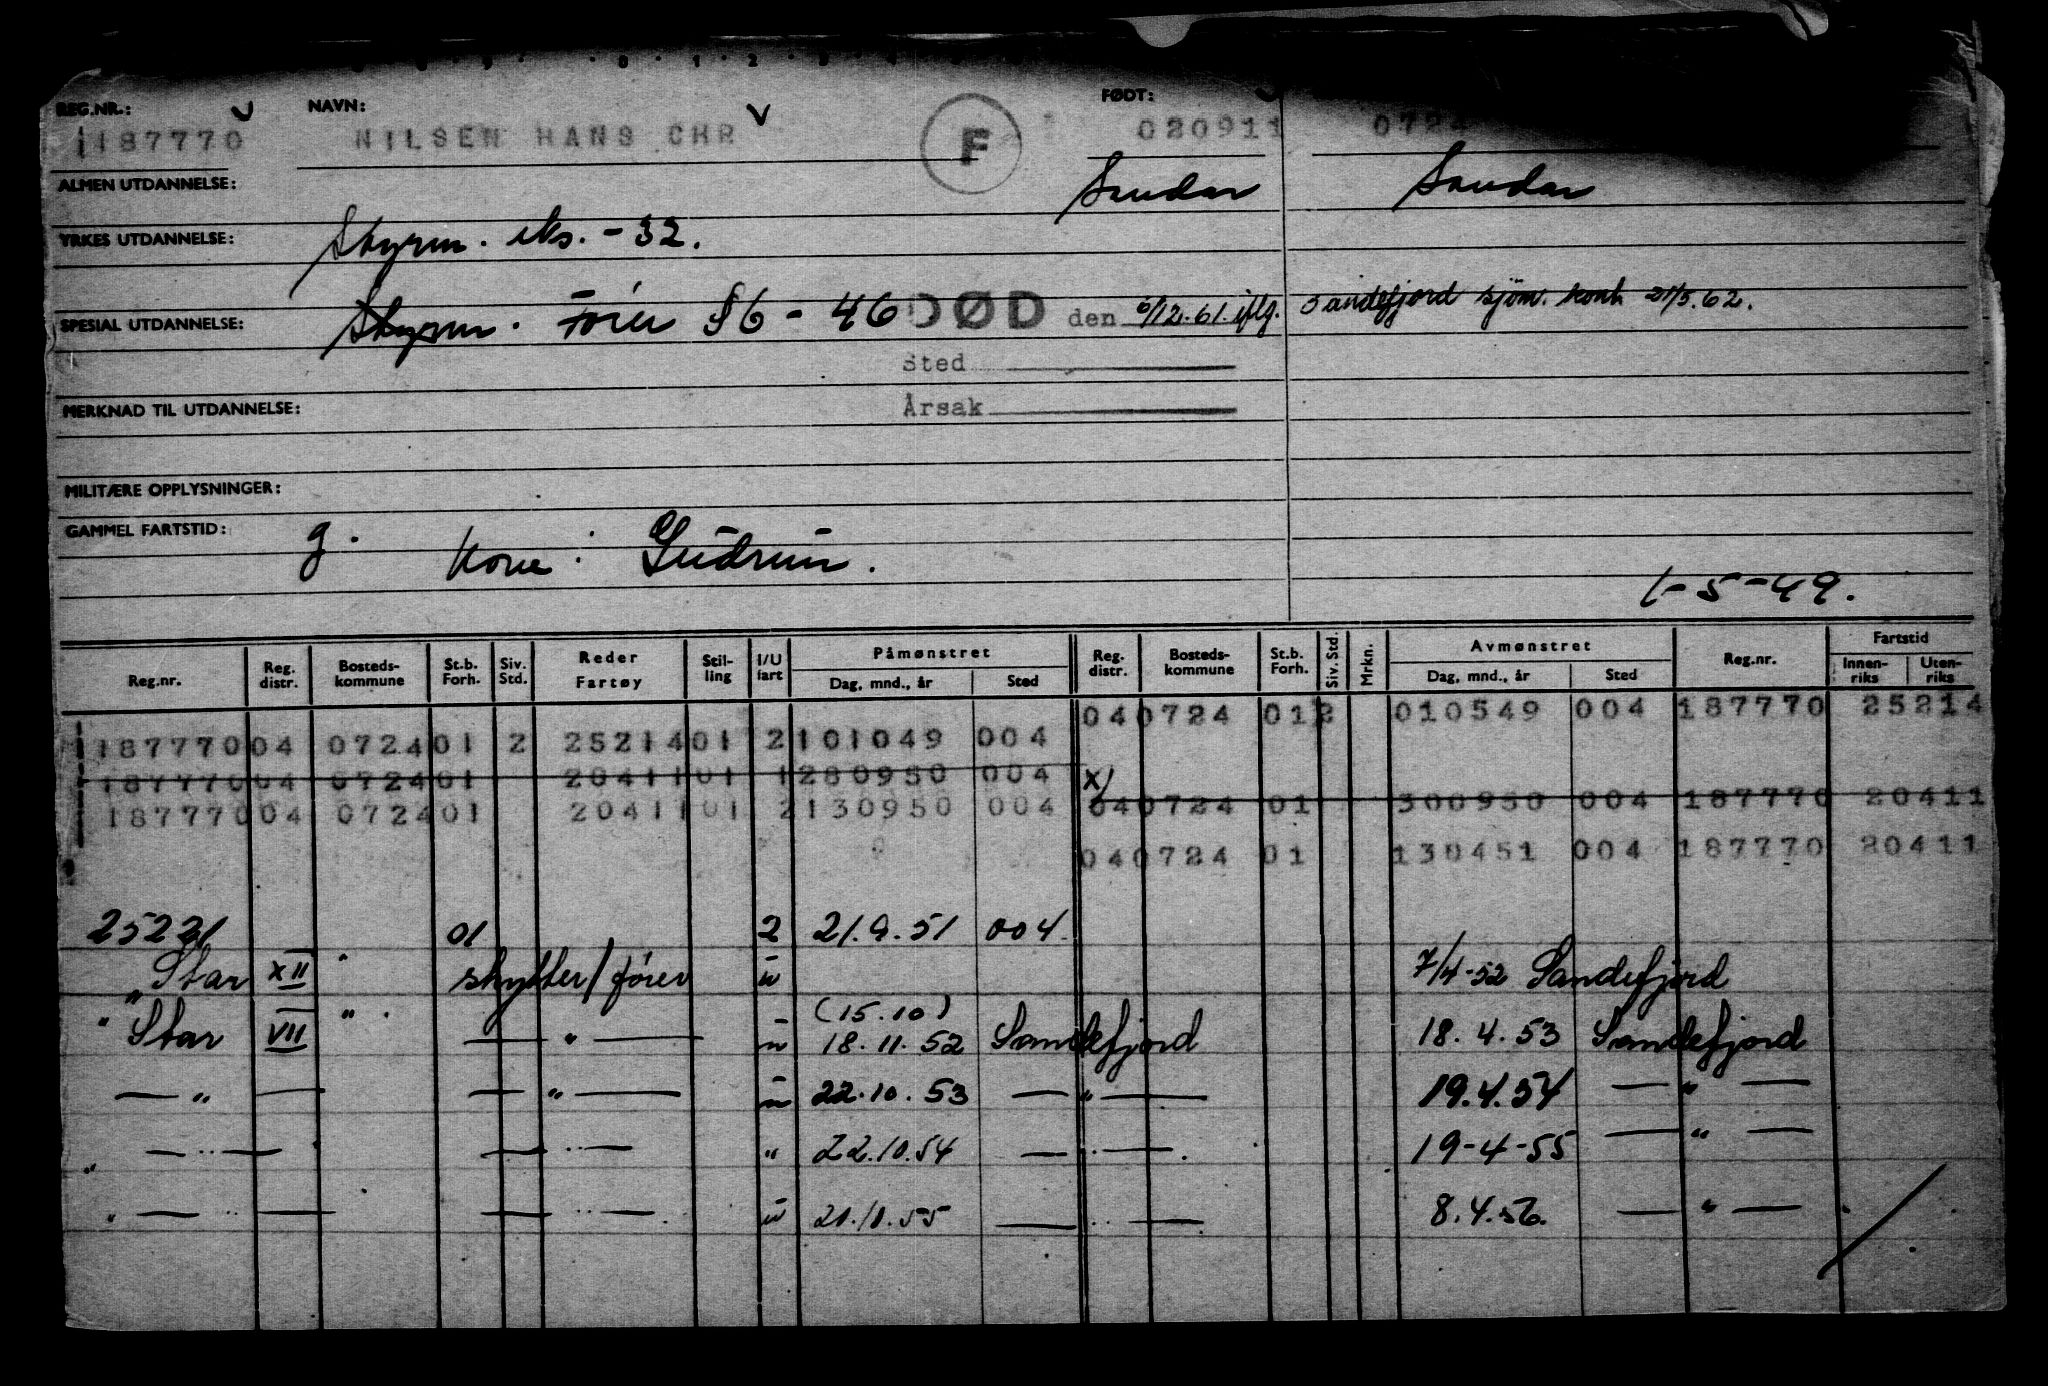 REG.NR.: NAVN: FØDT:
187770 NILSEN HANS CHR F 020911 0724
ALMEN UTDANNELSE: Sandar Sandar
YRKES UTDANNELSE: Styrm. eks. - 32.
SPESIAL UTDANNELSE: Styrm. Förer §6 - 46 DØD den 6/12.61. iflg. Sandefjord sjöm. kont 21/5.62.
Sted
MERKNAD TIL UTDANNELSE: Årsak
MILITÆRE OPPLYSNINGER:
GAMMEL FARTSTID: g. Kone: Gudrun.
1-5-49.
Reg.nr. Reg. distr. Bosteds-kommune St.b. Forh. Siv. Std. Reder Fartøy Stil-ling I/U fart Påmønstret Dag, mnd., år Sted Reg. distr. Bosteds-kommune St.b. Forh. Siv. Std. Mrkn. Avmønstret Dag, mnd., år Sted Reg.nr. Fartstid Innen-riks Uten-riks
040724 012 010549 004 187770 25214
187770 04 0724 01 2 25214 01 2 101049 004
187770 04 0724 01 20411 01 1 280950 004 x/
040724 01 300950 004 187770 20411
187770 04 0724 01 20411 01 2 130950 004
040724 01 130451 004 187770 20411
25221 01 2 21.9.51 004
" Star XII " skytter/förer u 7/4-52 Sandefjord
" Star VII " . — " — u (15.10) 18.11.52 Sandefjord 18.4.53 Sandefjord
— " — — " — u 22.10.53 — " — 19.4.54 — " —
" — " — — " — " 22.10.54 — " — . 19-4-55 — " —
" — — — " — u 21.10.55 — " — 8.4.56. — " —